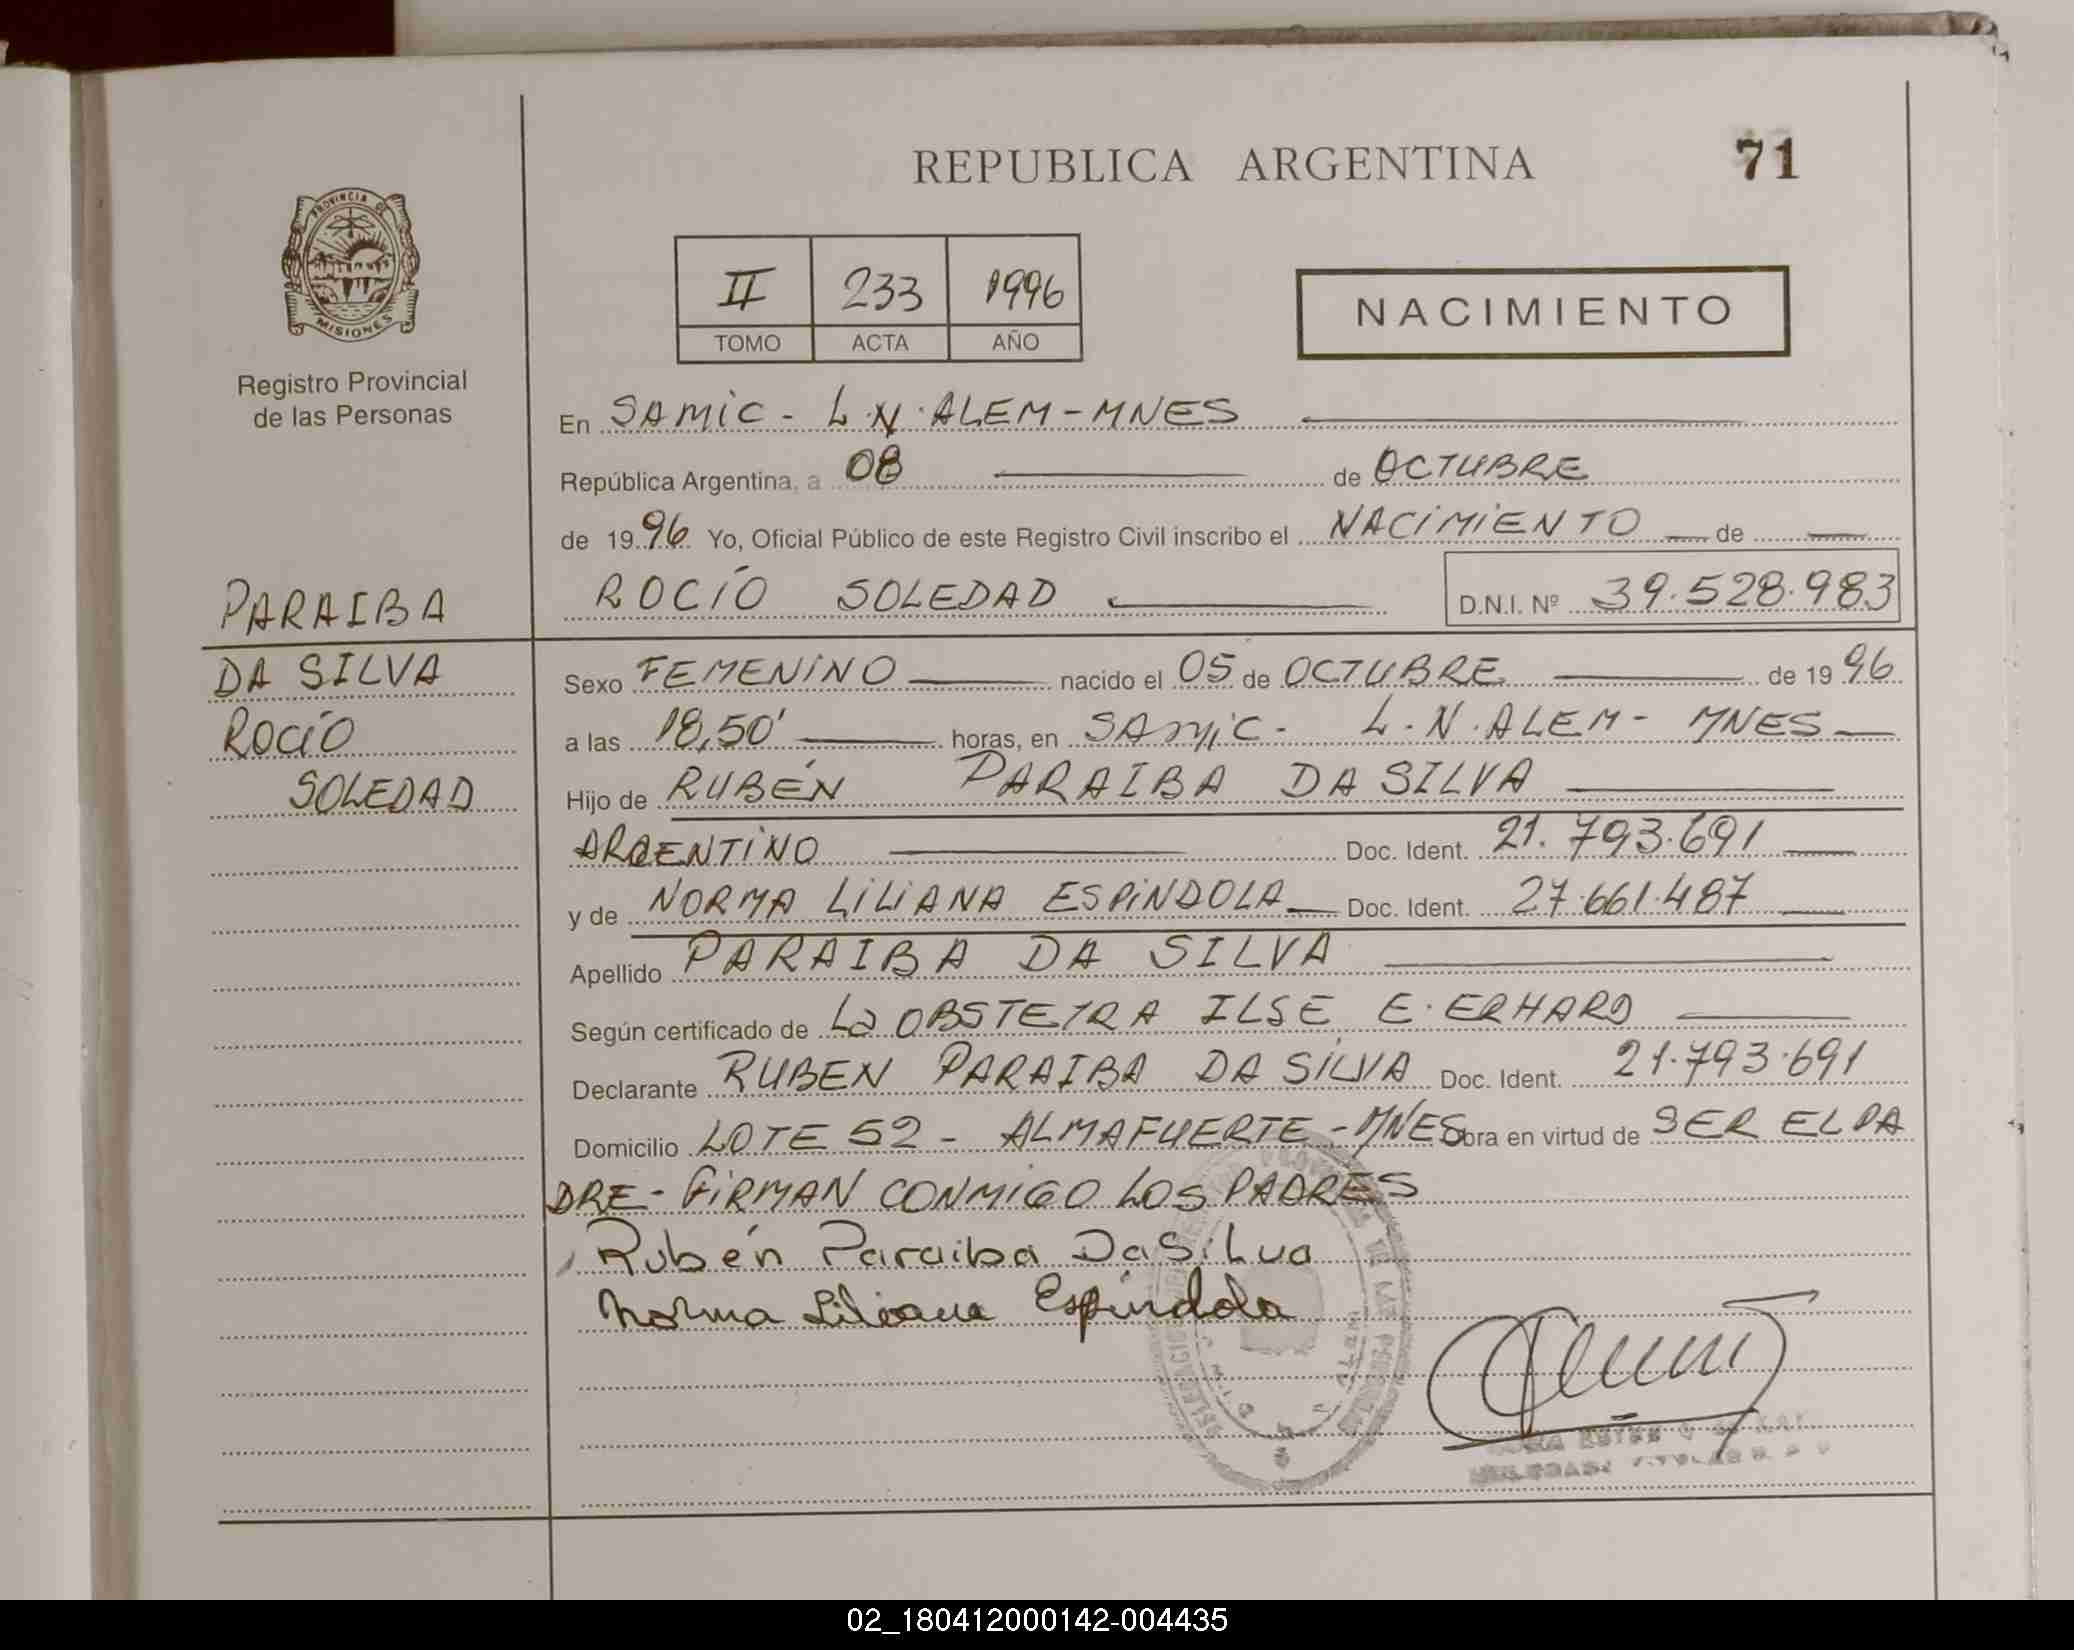 REPUBLICA ARGENTINA
71
PROVINCIA DE
MISIONES
Registro Provincial
de las Personas
II 233 1996
TOMO ACTA AÑO
NACIMIENTO
En SAMIC - L.N. ALEM - MNES
República Argentina, a 08 de OCTUBRE
de 1996 Yo, Oficial Público de este Registro Civil inscribo el NACIMIENTO de
ROCÍO SOLEDAD D.N.I. Nº 39.528.983
PARAIBA
DA SILVA
ROCÍO
SOLEDAD
Sexo FEMENINO nacido el 05 de OCTUBRE de 1996
a las 18,50' horas, en SAMIC - L.N. ALEM - MNES
Hijo de RUBÉN PARAIBA DA SILVA
ARGENTINO Doc. Ident. 21.793.691
y de NORMA LILIANA ESPINDOLA Doc. Ident. 27.661.487
Apellido PARAIBA DA SILVA
Según certificado de La OBSTETRA ILSE E. ERHARD
Declarante RUBEN PARAIBA DA SILVA Doc. Ident. 21.793.691
Domicilio LOTE 52 - ALMAFUERTE - MNES obra en virtud de SER EL PA
DRE - FIRMAN CONMIGO LOS PADRES
Rubén Paraiba DaSilva
Norma Liliana Espíndola
02_180412000142-004435